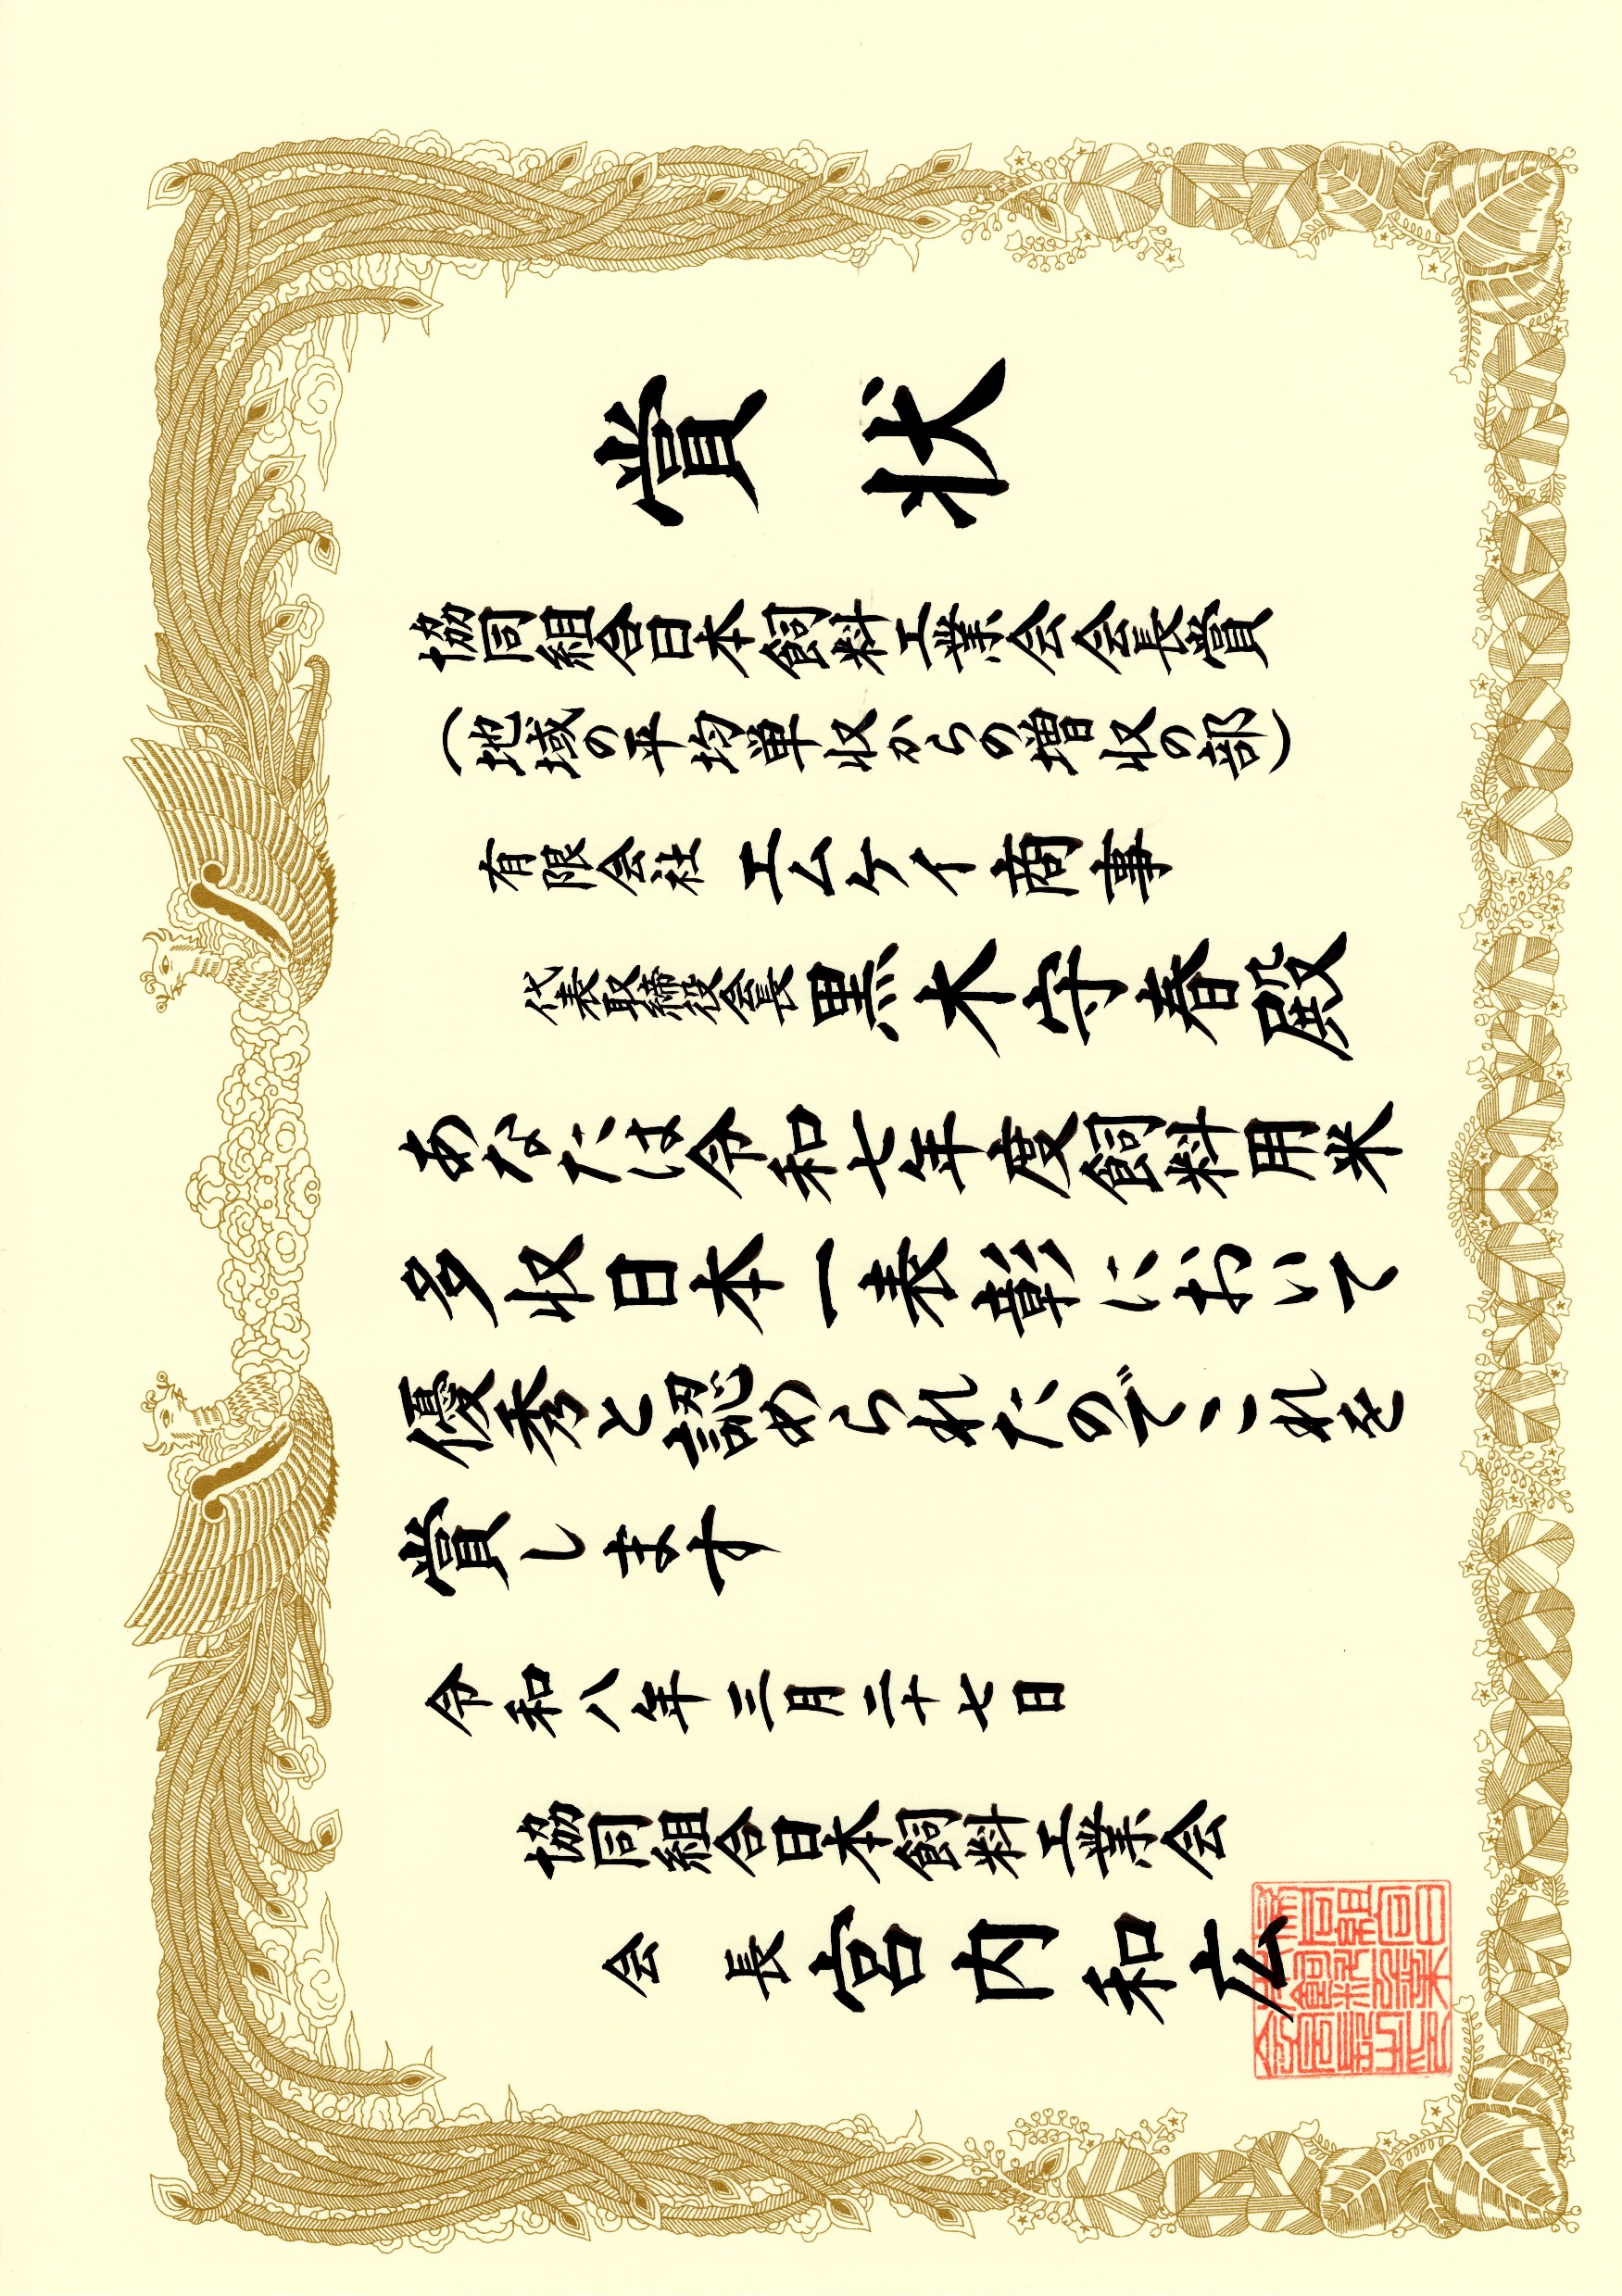 賞状
協同組合日本飼料工業会会長賞
(地域の平均単収からの増収の部)
有限会社エムケイ商事
代表取締役会長黒木守春殿
あなたは令和七年度飼料用米
多収日本一表彰において
優秀と認められたのでこれを
賞します
令和八年三月二十七日
協同組合日本飼料工業会
会長宮内和広